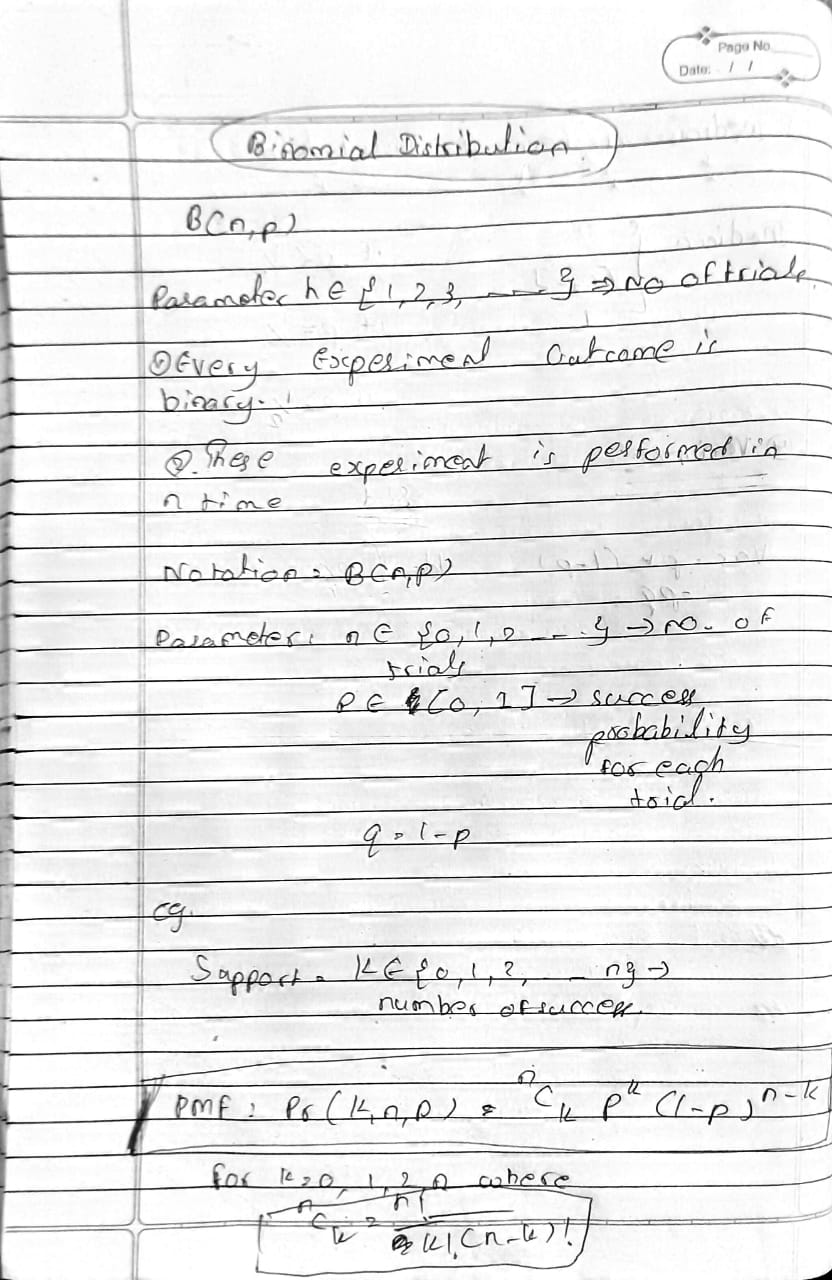 Page No.
Date: / /
Binomial Distribution
B(n,p)
Parameter n ∈ {1,2,3, --- } ⇒ No of trials
① Every Experiment outcome is
binary.
② These experiment is performed in
n time
Notation = B(n,p)
Parameter: n ∈ {0,1,2 --- } → no. of
trials
p ∈ [0, 1] → success
probability
for each
trial.
q = 1-p
eg.
Support = k ∈ {0,1,2, ... n} →
number of success.
PMF: Pr(k,n,p) = ⁿCₖ pᵏ (1-p)ⁿ⁻ᵏ
for k=0, 1, 2, n where
ⁿCₖ = n! / k!(n-k)!